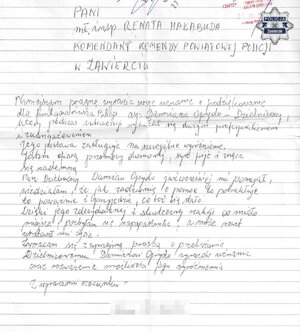 PANI
mł. insp. RENATA MAKABUDA
KOMENDANT KOMENDY POWIATOWEJ POLICJI
W ZAWIERCIU
POLICJA
Zawiercie
Niniejszym pragnę wyrazić moje uznanie i podziękowanie
dla funkcjonariusza Policji asp. Damiana Opydo - Dzielnicowy,
który podczas interwencji wykazał się dużym profesjonalizmem
i zaangażowaniem
Jego postawa zasługuje na szczególne wyróżnienie.
Jestem ofiarą przemocy domowej, syn pije i znęca
się nademną
Pan Dzielnicowy Damian Opydo mi pomógł,
wiedziałam, że jak zadzwonię to pomoc to potraktuje
to poważnie i
Dzięki jego zdecydowanej i skutecznej reakcji co miało
miejsce i a może nawet
Zwracam się z uprzejmą prośbą o przekazanie
Dzielnicowemu Damianowi Opydo wyrazów uznania
oraz rozważenie możliwości jego wyróżnienia
Z wyrazami szacunku -